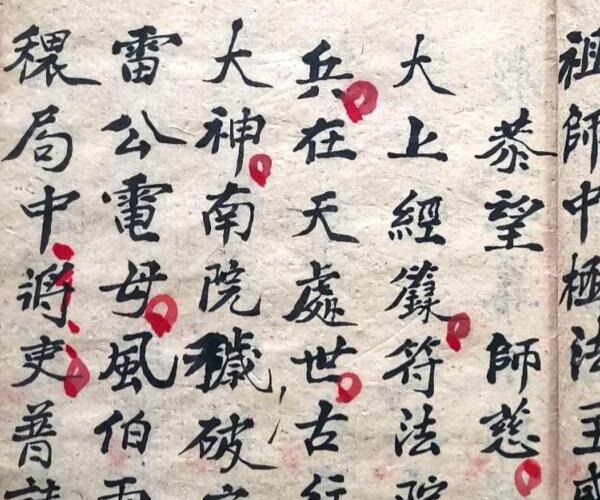 祖師中極法王
恭望 師慈
大上經籙符法院
兵在天處世古行
大神南院穢破
雷公電母風伯雨
穢局中將吏普請